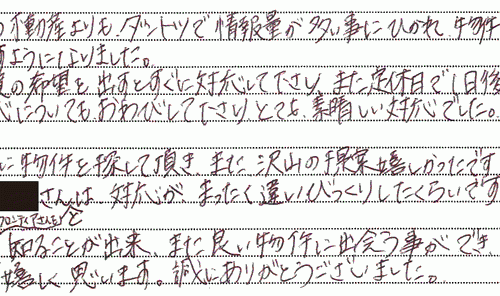 の不動産よりもダントツで情報量が多い事にひかれ、物件
すようになりました。
の希望を出すとすぐに対応して下さり、また定休日で1日後
についてもおわびして下さりとても素晴しい対応でした。
に物件を探して頂き、また沢山の提案嬉しかったです
さんは対応がまったく違いびっくりしたくらいです
フロンティアさんもと
知ることが出来、また良い物件に出会う事ができ
嬉しく思います。誠にありがとうございました。